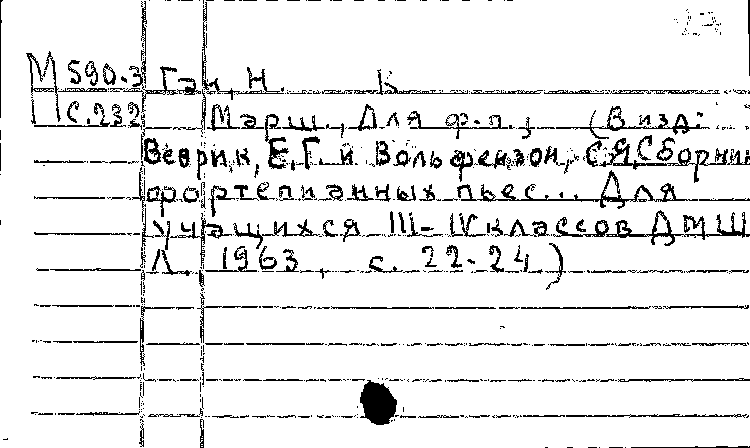 М 590.3 Ган, Н. К
С.232 Марш., Для ф.п., (В изд:
Веврик, Е.Г. и Вольфензон, С.Я, Сборник
фортепианных пьес... Для
учащихся III-IV классов ДМШ
Л., 1963, с. 22-24)